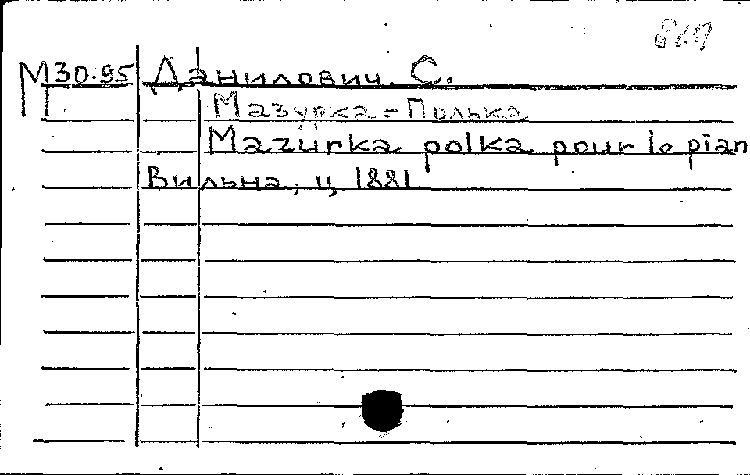 М30-95 Данилович. С.
П
Мазурка-Полька
Mazurka polka pour le pian
Вильна, ц. 1881